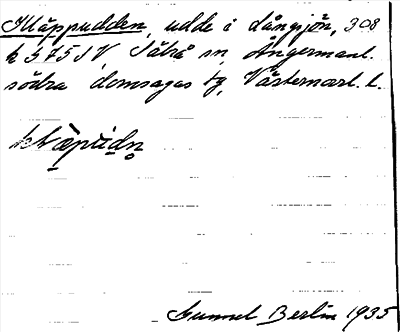 Kläppudden, udde i Långsjön, 308
k 575 SV, Sätra sn, Ångermanl.
södra domsagas tg, Västernorrl. l.
Gunnel Berlin 1935